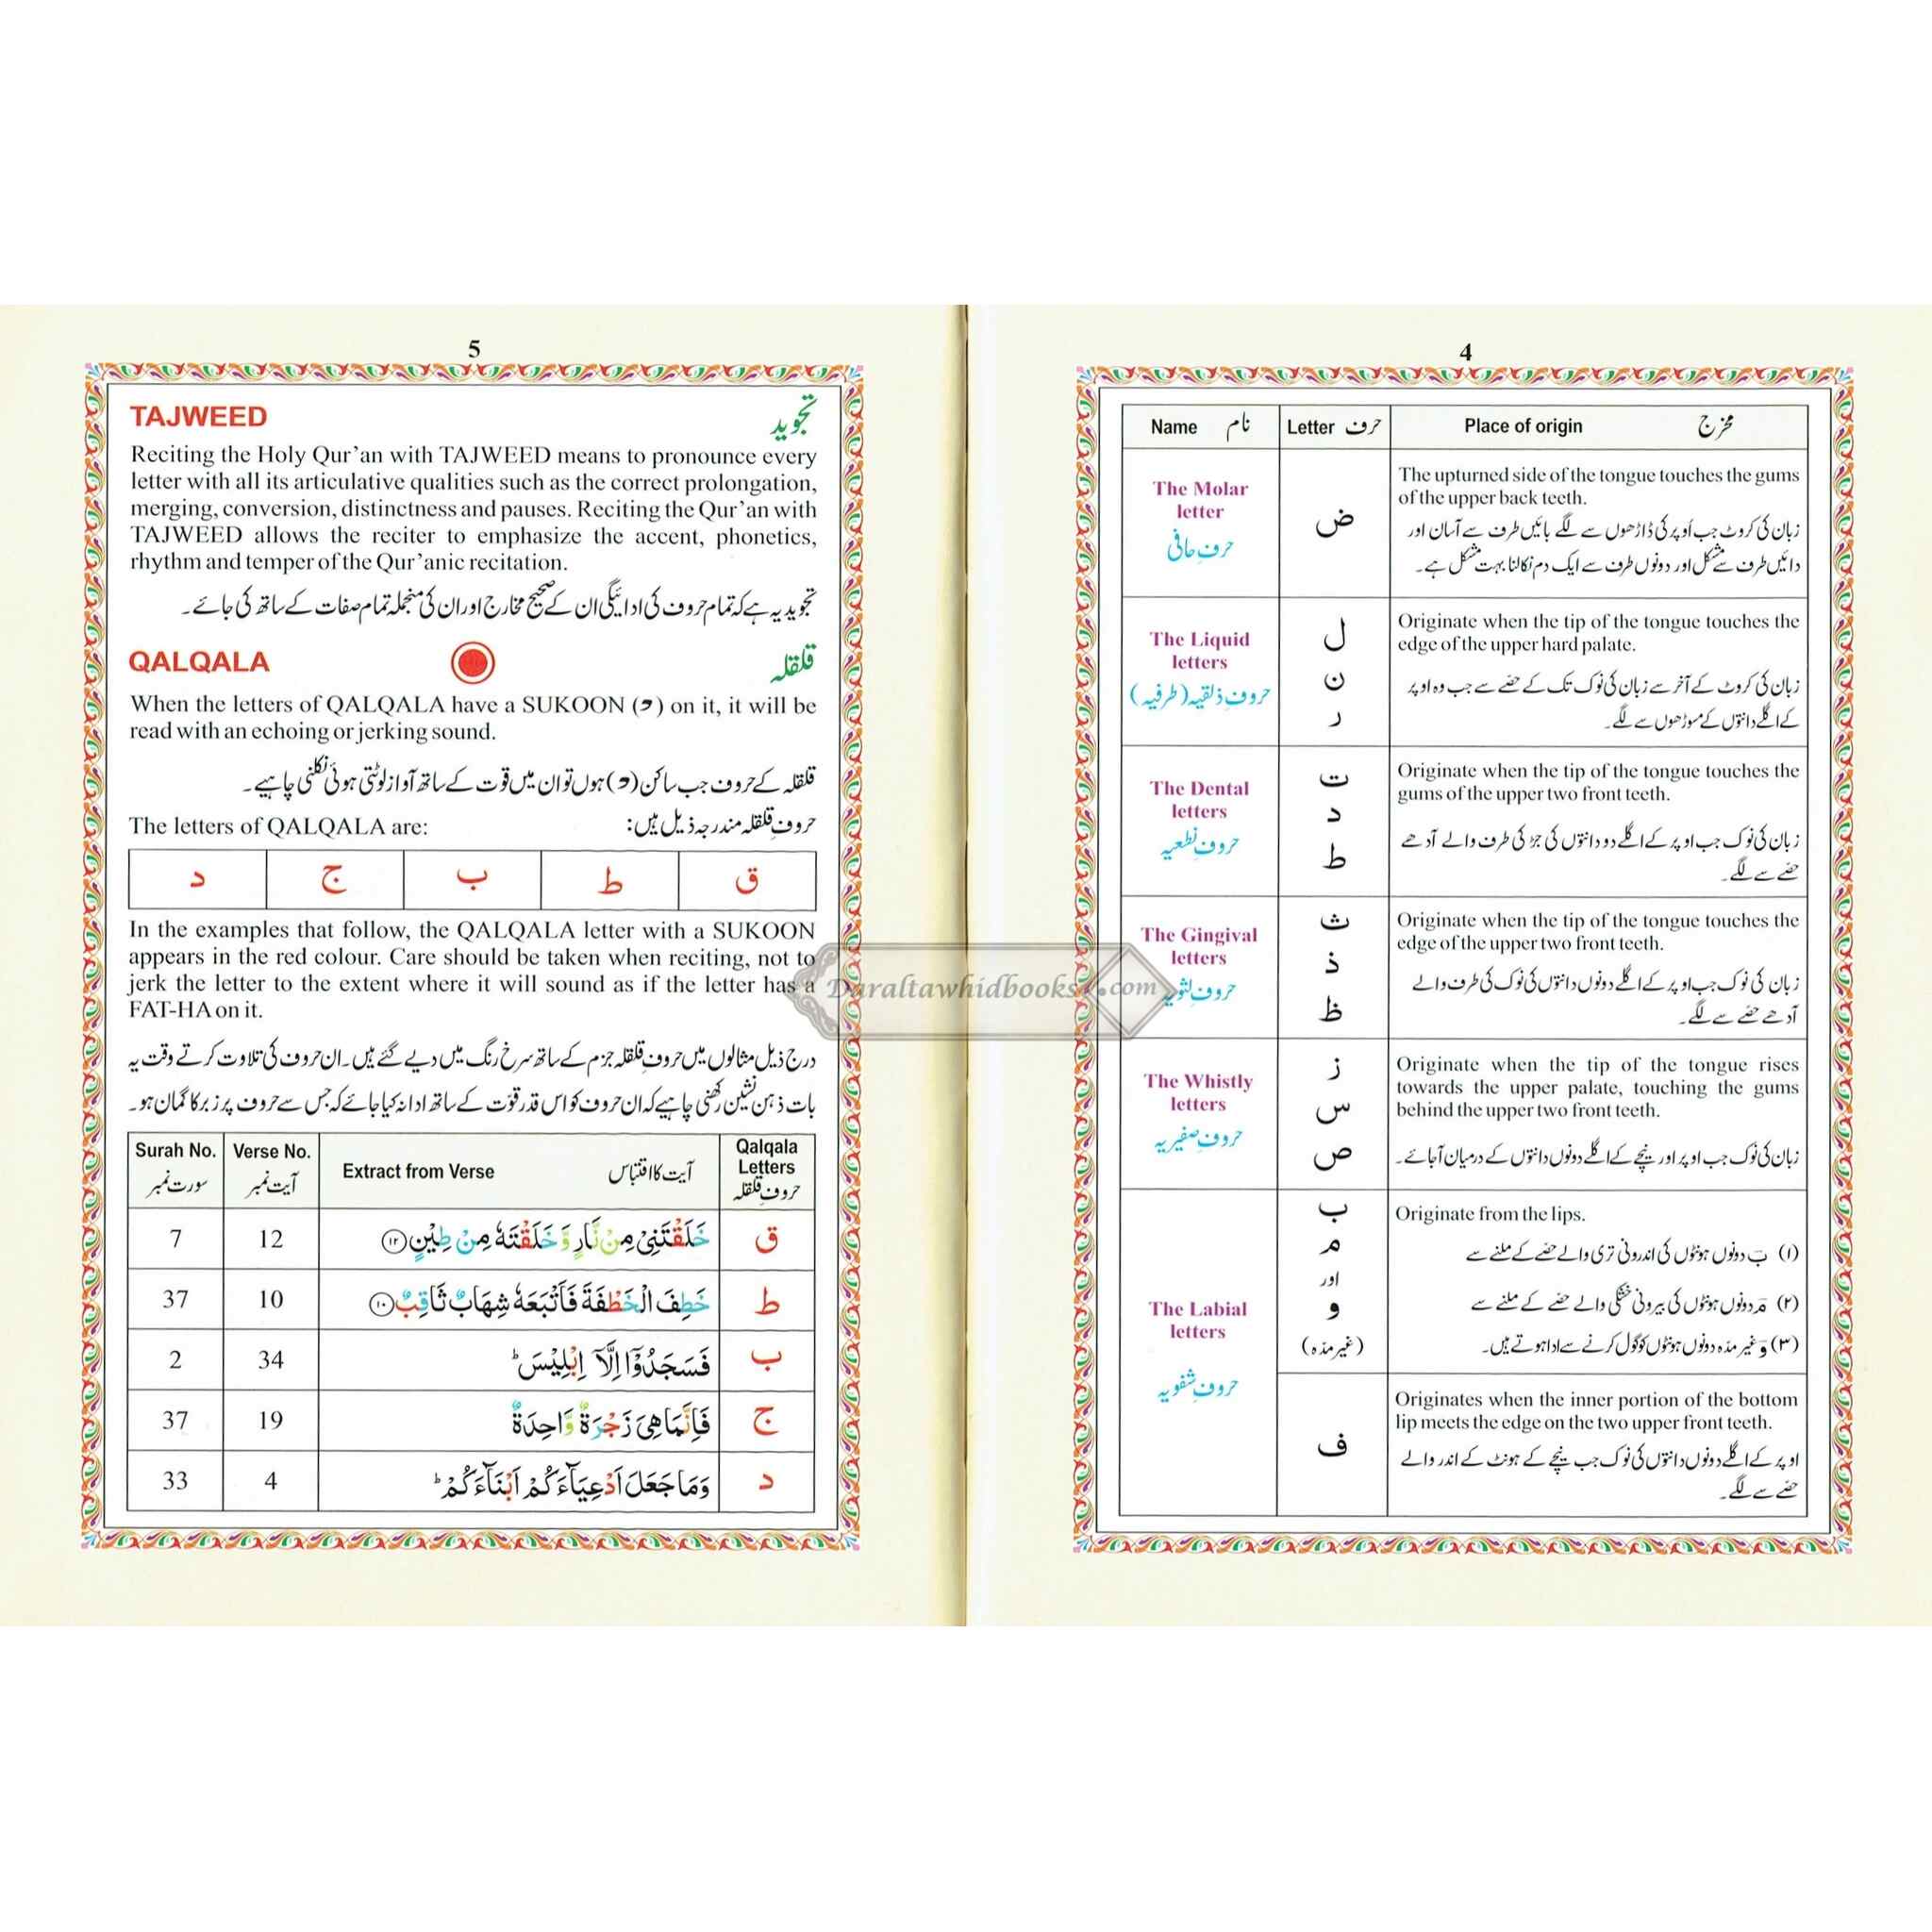 4
Name نام Letter حرف Place of origin مخرج
The Molar
letter
حرفِ حافی
ض
The upturned side of the tongue touches the gums
of the upper back teeth.
زبان کی کروٹ جب اُوپر کی ڈاڑھوں سے لگے بائیں طرف سے آسان اور
دائیں طرف سے مشکل اور دونوں طرف سے ایک دم نکالنا بہت مشکل ہے۔
The Liquid
letters
حروفِ ذلقیہ (طرفیہ)
ل
ن
ر
Originate when the tip of the tongue touches the
edge of the upper hard palate.
زبان کی کروٹ کے آخر سے زبان کی نوک تک کے حصّے سے جب وہ اوپر
کے اگلے دانتوں کے مسوڑھوں سے لگے۔
The Dental
letters
حروفِ نطعیہ
ت
د
ط
Originate when the tip of the tongue touches the
gums of the upper two front teeth.
زبان کی نوک جب اوپر کے اگلے دو دانتوں کی جڑ کی طرف والے آدھے
حصّے سے لگے۔
The Gingival
letters
حروفِ لثویہ
ث
ذ
ظ
Originate when the tip of the tongue touches the
edge of the upper two front teeth.
زبان کی نوک جب اوپر کے اگلے دونوں دانتوں کی نوک کی طرف والے
آدھے حصّے سے لگے۔
The Whistly
letters
حروفِ صفیریہ
ز
س
ص
Originate when the tip of the tongue rises
towards the upper palate, touching the gums
behind the upper two front teeth.
زبان کی نوک جب اوپر اور نیچے کے اگلے دونوں دانتوں کے درمیان آجائے۔
The Labial
letters
حروفِ شفویہ
ب
م
اور
و
(غیر مدّہ)
Originate from the lips.
(۱) بَ دونوں ہونٹوں کی اندرونی تری والے حصّے کے ملنے سے
(۲) مَ دونوں ہونٹوں کی بیرونی خشکی والے حصّے کے ملنے سے
(۳) وَ غیر مدّہ دونوں ہونٹوں کو گول کرنے سے ادا ہوتے ہیں۔
ف
Originates when the inner portion of the bottom
lip meets the edge on the two upper front teeth.
اوپر کے اگلے دونوں دانتوں کی نوک جب نیچے کے ہونٹ کے اندر والے
حصّے سے لگے۔
5
TAJWEED تجوید
Reciting the Holy Qur’an with TAJWEED means to pronounce every
letter with all its articulative qualities such as the correct prolongation,
merging, conversion, distinctness and pauses. Reciting the Qur’an with
TAJWEED allows the reciter to emphasize the accent, phonetics,
rhythm and temper of the Qur’anic recitation.
تجوید یہ ہے کہ تمام حروف کی ادائیگی ان کے صحیح مخارج اور ان کی منجملہ تمام صفات کے ساتھ کی جائے۔
QALQALA قلقلہ
When the letters of QALQALA have a SUKOON (ﹿ) on it, it will be
read with an echoing or jerking sound.
قلقلہ کے حروف جب ساکن (ﹿ) ہوں تو ان میں قوت کے ساتھ آواز لوٹتی ہوئی نکلنی چاہیے۔
The letters of QALQALA are: حروفِ قلقلہ مندرجہ ذیل ہیں:
ق ط ب ج د
In the examples that follow, the QALQALA letter with a SUKOON
appears in the red colour. Care should be taken when reciting, not to
jerk the letter to the extent where it will sound as if the letter has a
FAT-HA on it.
درج ذیل مثالوں میں حروفِ قلقلہ جزم کے ساتھ سرخ رنگ میں دیے گئے ہیں۔ ان حروف کی تلاوت کرتے وقت یہ
بات ذہن نشین رکھنی چاہیے کہ ان حروف کو اس قدر قوّت کے ساتھ ادا نہ کیا جائے کہ جس سے حروف پر زبر کا گمان ہو۔
Surah No. سورت نمبر Verse No. آیت نمبر Extract from Verse آیت کا اقتباس Qalqala Letters حروفِ قلقلہ
7 12 خَلَقْتَنِیْ مِنْ نَّارٍ وَّ خَلَقْتَهٗ مِنْ طِیْنٍ ۝۱۲ ق
37 10 خَطِفَ الْخَطْفَةَ فَاَتْبَعَهٗ شِهَابٌ ثَاقِبٌ ۝۱۰ ط
2 34 فَسَجَدُوْۤا اِلَّاۤ اِبْلِیْسَ ؕ ب
37 19 فَاِنَّمَا هِیَ زَجْرَةٌ وَّاحِدَةٌ ج
33 4 وَمَا جَعَلَ اَدْعِیَآءَكُمْ اَبْنَآءَكُمْ ؕ د
Daraltawhidbooks.com